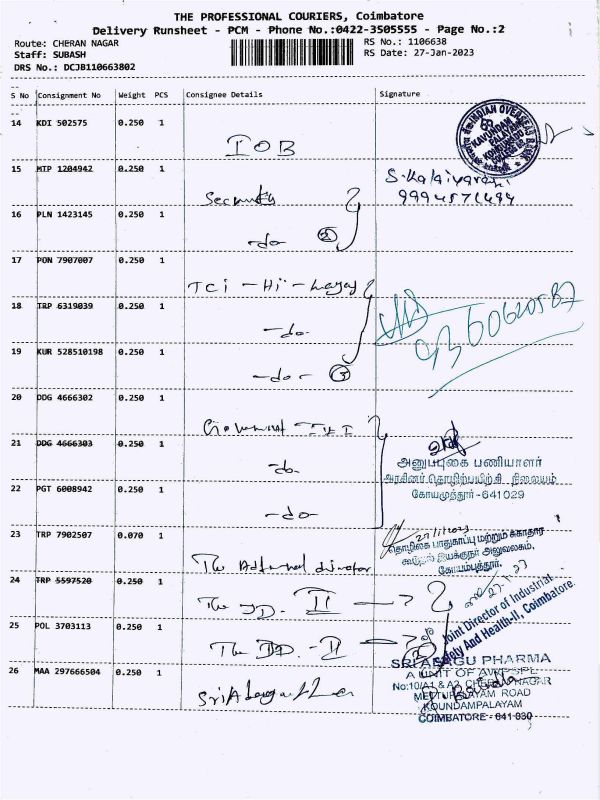 THE PROFESSIONAL COURIERS, Coimbatore
Delivery Runsheet - PCM - Phone No.:0422-3505555 - Page No.:2
Route: CHERAN NAGAR
RS No.: 1106638
Staff: SUBASH
RS Date: 27-Jan-2023
DRS No.: DCJB110663802
S No Consignment No Weight PCS Consignee Details Signature
14 KDI 502575 0.250 1 IOB
INDIAN OVERSEAS BANK
KAVUNDAM PALAYAM
15 MTP 1204942 0.250 1 Security
S. Kalaivarani
16 PLN 1423145 0.250 1 -do- 2
17 PON 7907007 0.250 1 TCi - Hi - ways
18 TRP 6319039 0.250 1 -do-
9360620587
19 KUR 528510198 0.250 1 -do- 3
20 DDG 4666302 0.250 1 ITI
21 DDG 4666303 0.250 1 -do-
அனுப்புகை பணியாளர்
அரசினர் தொழிற்பயிற்சி நிலையம்
கோயமுத்தூர் - 641029
22 PGT 6008942 0.250 1 -do-
23 TRP 7902507 0.070 1 The Additional director
27/1/2023
தொழிலக பாதுகாப்பு மற்றும் சுகாதார
கூடுதல் இயக்குநர் அலுவலகம்,
கோயம்புத்தூர்.
24 TRP 5597520 0.250 1 The JD. II
25 POL 3703113 0.250 1 The DD - II
Joint Director of Industrial
Safety And Health-II, Coimbatore.
26 MAA 297666504 0.250 1 Sri Alagu
SRI ALAGU PHARMA
A UNIT OF AWPSPL
No:10/A1 & A2, CHERAN NAGAR
METTUPALAYAM ROAD
KOUNDAMPALAYAM
COIMBATORE - 641 030